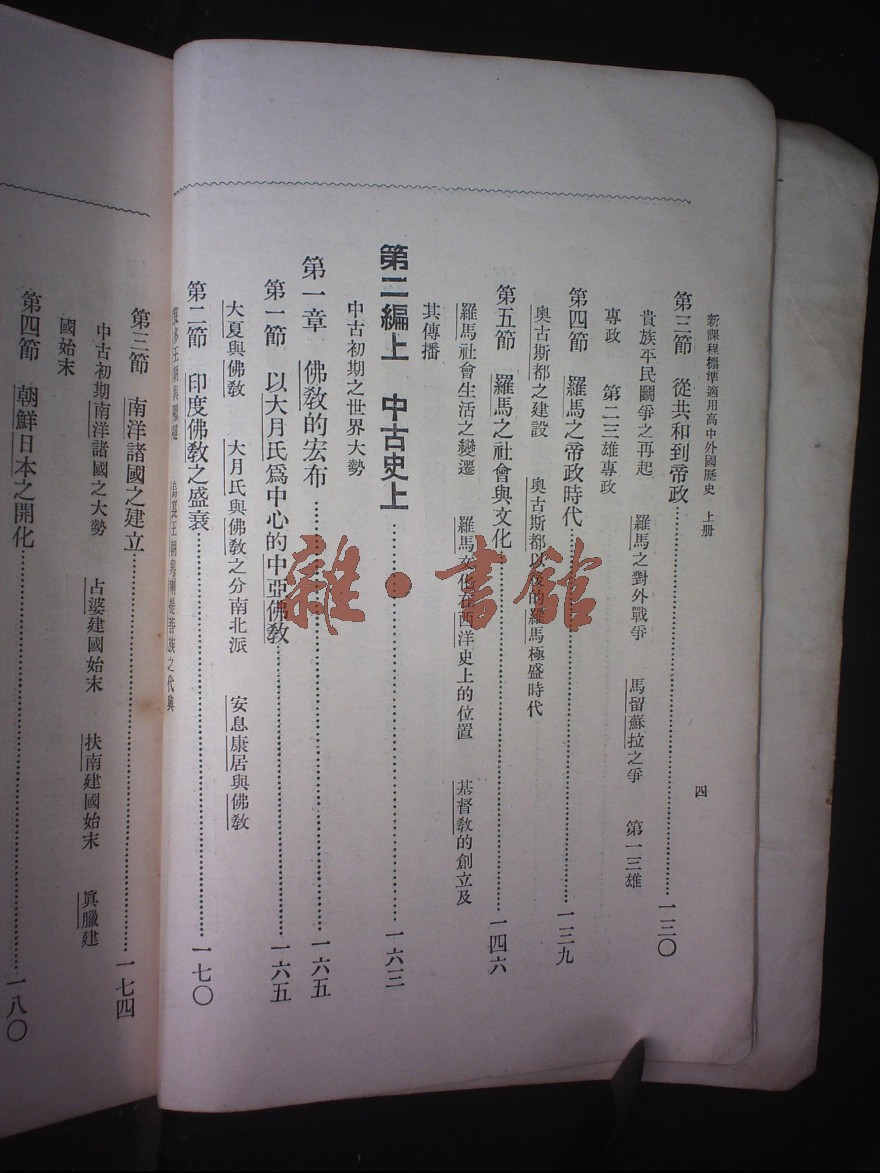 新課程標準適用高中外國歷史　上册
四
第三節　從共和到帝政……一三〇
貴族平民鬭爭之再起　羅馬之對外戰爭　馬留蘇拉之爭　第一三雄
專政　第二三雄專政
第四節　羅馬之帝政時代……一三九
奧古斯都之建設　奧古斯都以後的羅馬極盛時代
第五節　羅馬之社會與文化……一四六
羅馬社會生活之變遷　羅馬文化在西洋史上的位置　基督教的創立及
其傳播
第二編上　中古史上……一六三
中古初期之世界大勢
第一章　佛教的宏布……一六五
第一節　以大月氏爲中心的中亞佛教……一六五
大夏與佛教　大月氏與佛教之分南北派　安息康居與佛教
第二節　印度佛教之盛衰……一七〇
王朝與　王朝與　族之代興
第三節　南洋諸國之建立……一七四
中古初期南洋諸國之大勢　占婆建國始末　扶南建國始末　眞臘建
國始末
第四節　朝鮮日本之開化……一八〇
雜·書館